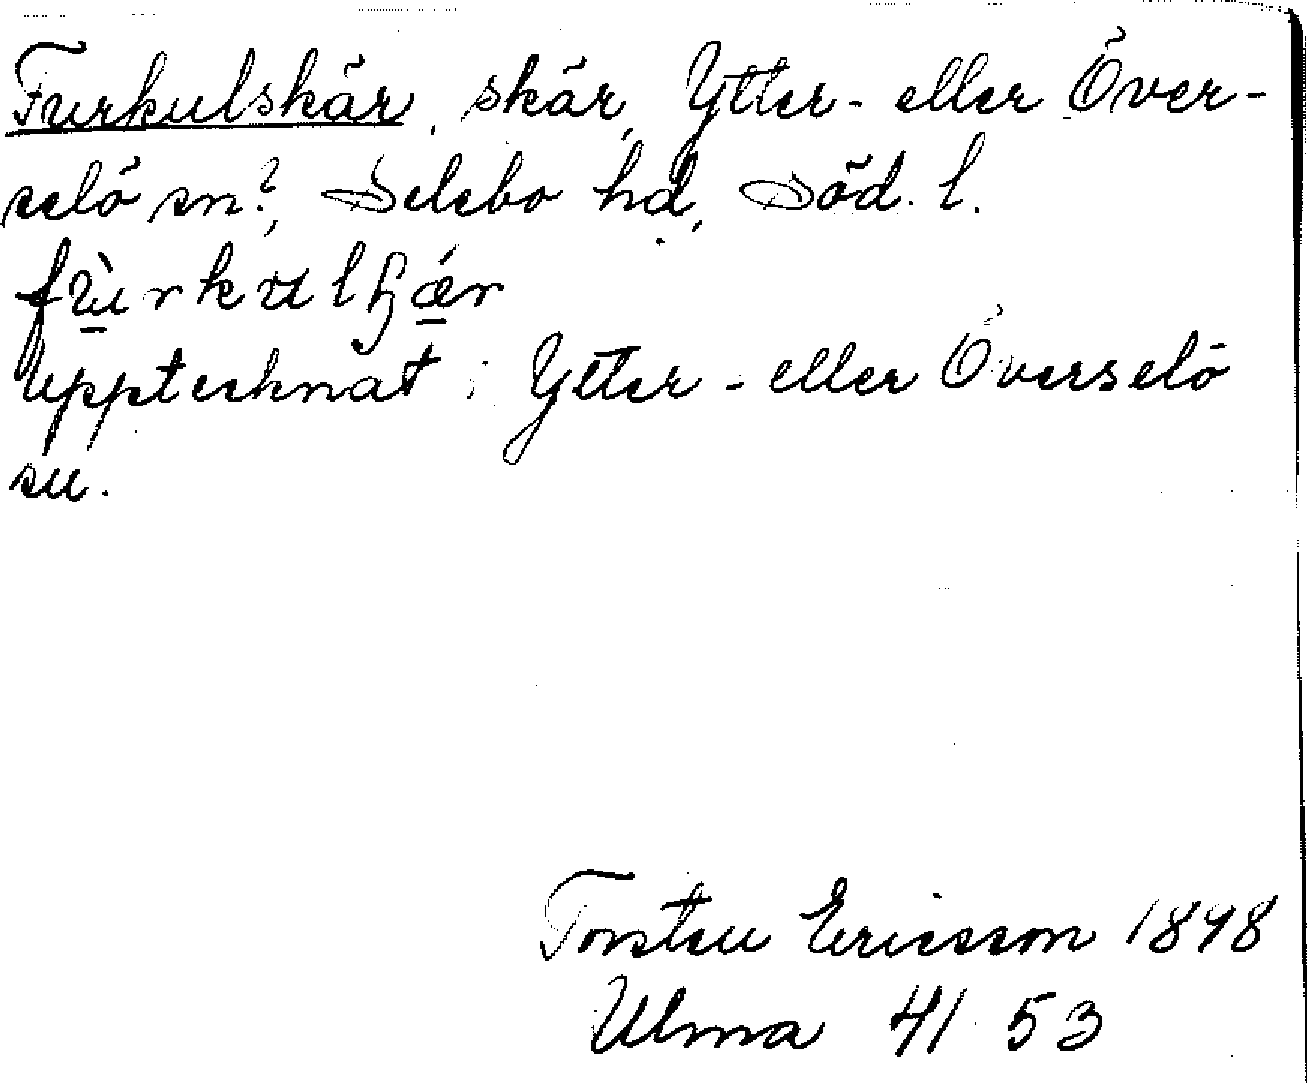 Furkulskär, skär, Ytter- eller Över-
selö sn?, Selebo hd, Söd. l.
fùrkulʃǽr
Upptecknat i Ytter- eller Överselö
sn.
Torsten Ericsson 1898
Ulma 41 53